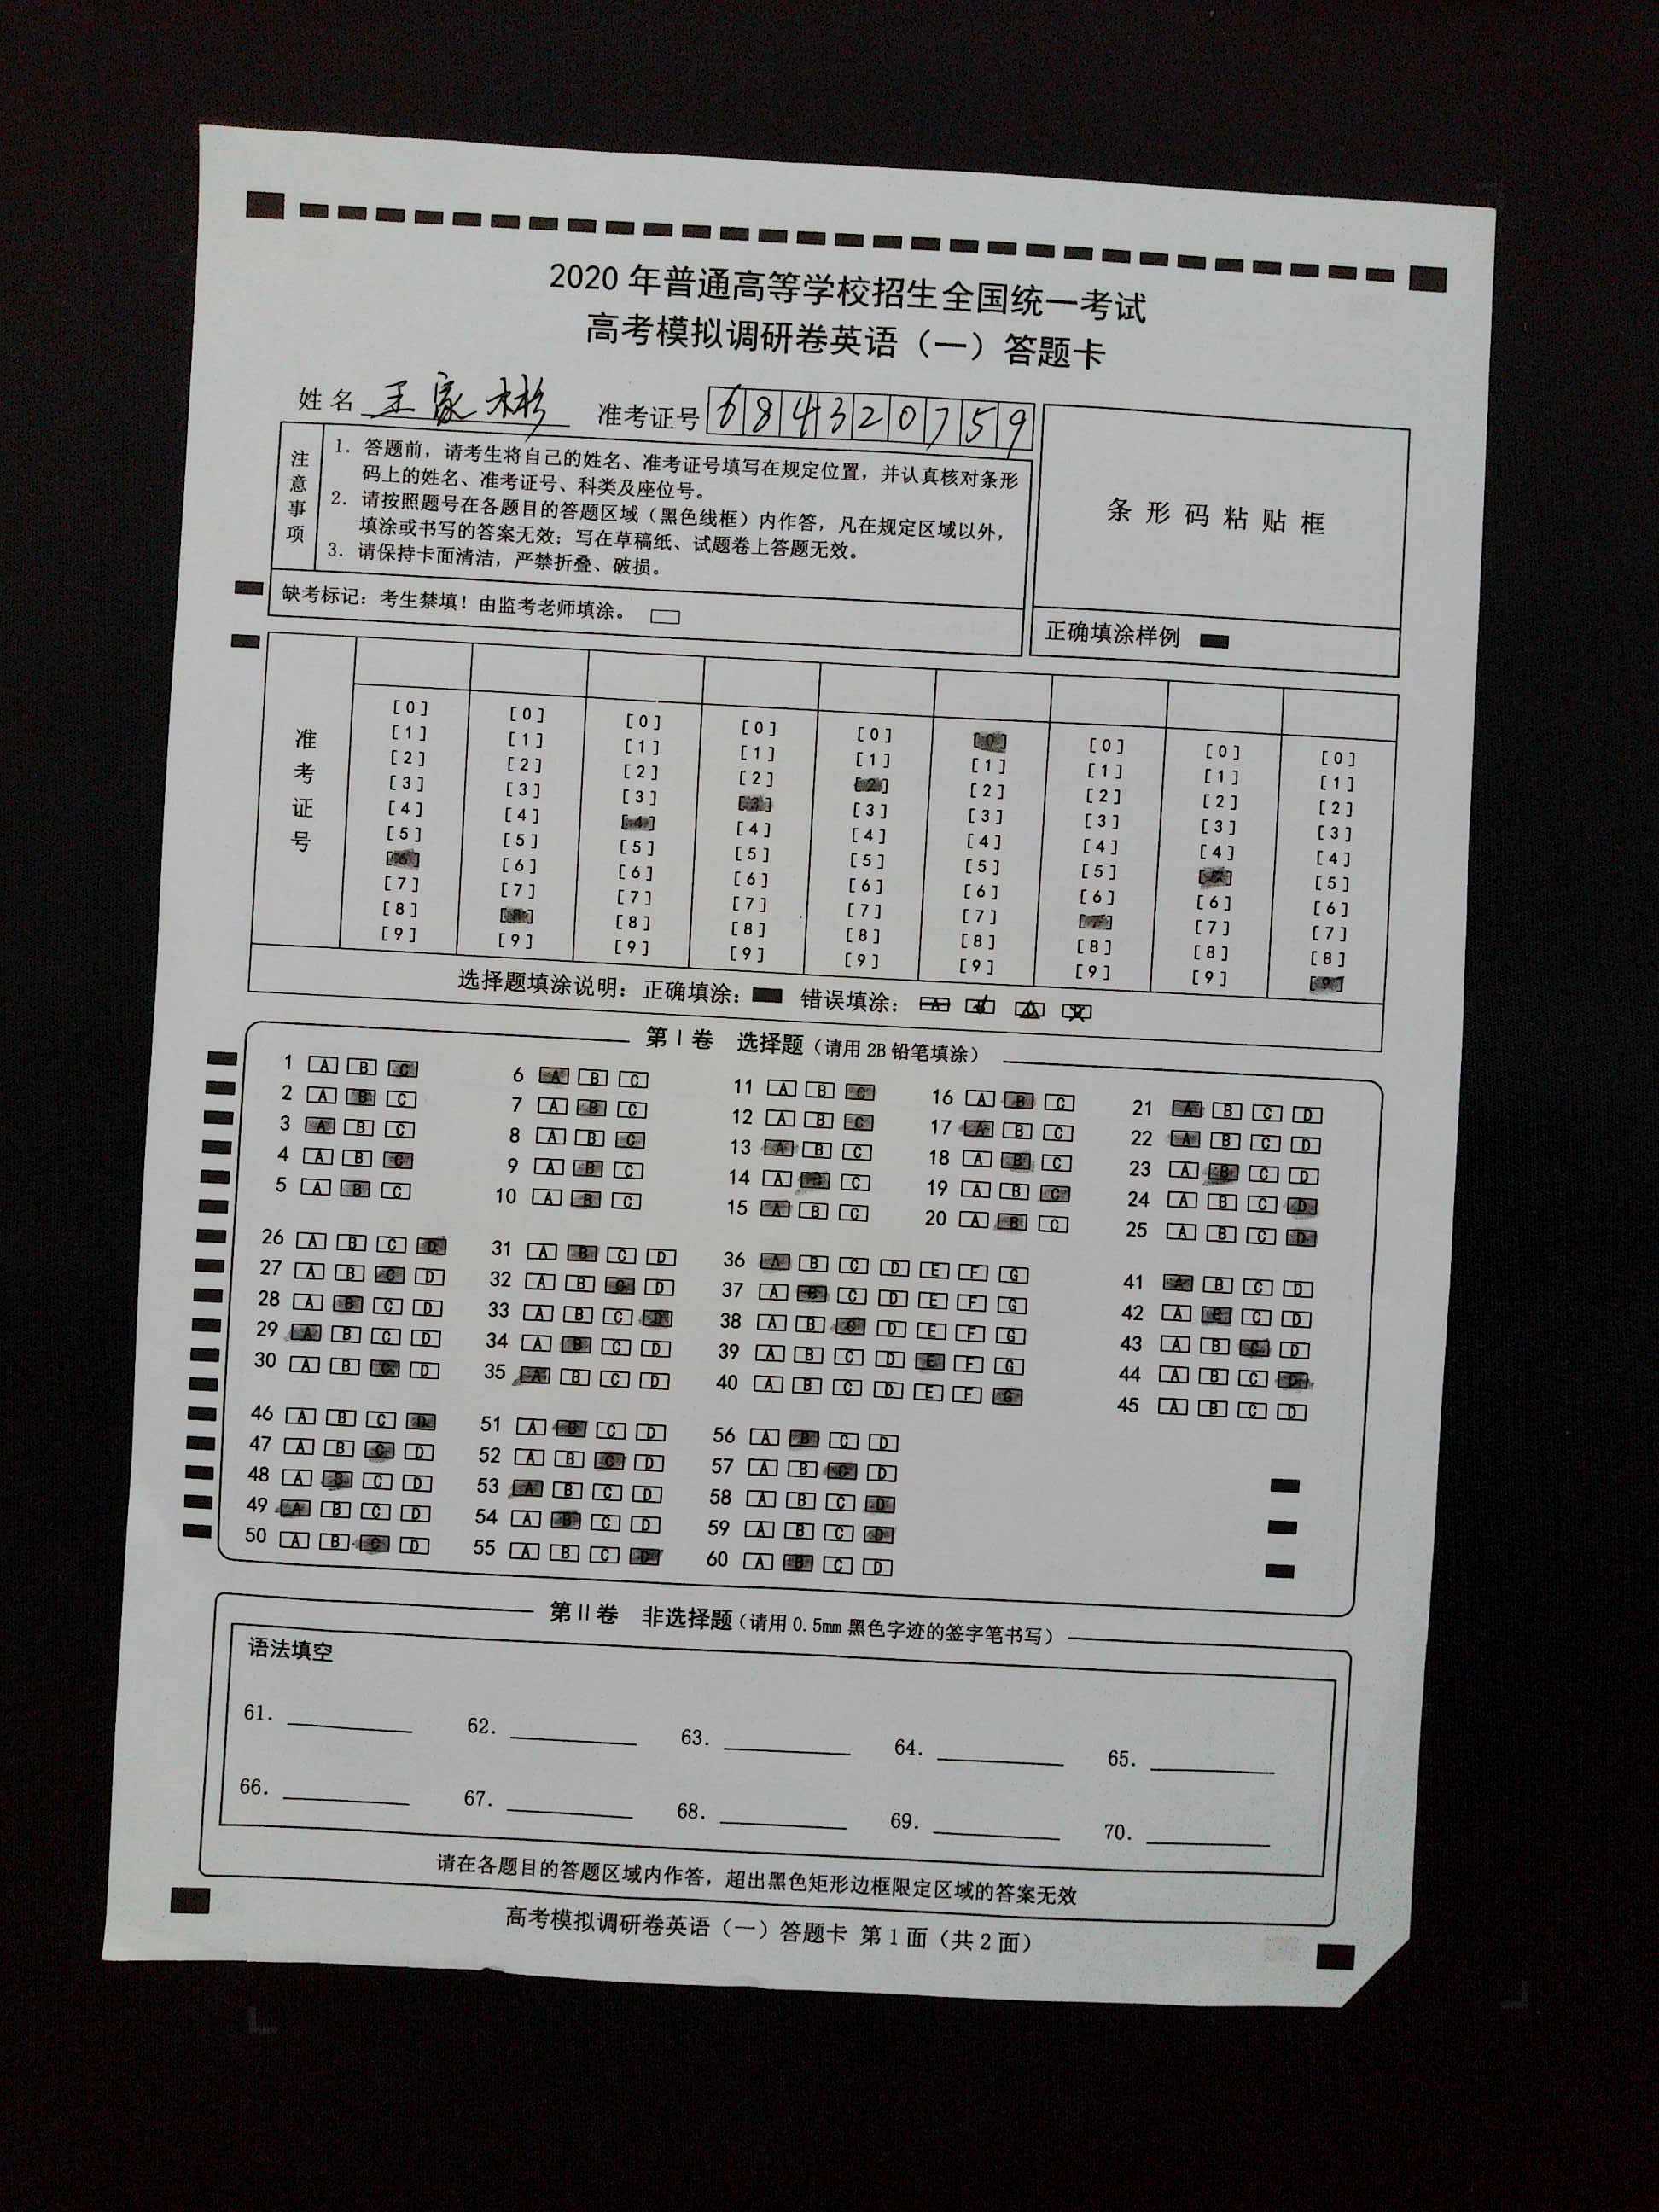 2020年普通高等学校招生全国统一考试
高考模拟调研卷英语（一）答题卡
姓名 王家彬 准考证号 684320759
注意事项
1. 答题前，请考生将自己的姓名、准考证号填写在规定位置，并认真核对条形
码上的姓名、准考证号、科类及座位号。
2. 请按照题号在各题目的答题区域（黑色线框）内作答，凡在规定区域以外，
填涂或书写的答案无效；写在草稿纸、试题卷上答题无效。
3. 请保持卡面清洁，严禁折叠、破损。
缺考标记：考生禁填！由监考老师填涂。
条形码粘贴框
正确填涂样例
准考证号
[0] [0] [0] [0] [0] [0] [0] [0] [0]
[1] [1] [1] [1] [1] [1] [1] [1] [1]
[2] [2] [2] [2] [2] [2] [2] [2] [2]
[3] [3] [3] [3] [3] [3] [3] [3] [3]
[4] [4] [4] [4] [4] [4] [4] [4] [4]
[5] [5] [5] [5] [5] [5] [5] [5] [5]
[6] [6] [6] [6] [6] [6] [6] [6] [6]
[7] [7] [7] [7] [7] [7] [7] [7] [7]
[8] [8] [8] [8] [8] [8] [8] [8] [8]
[9] [9] [9] [9] [9] [9] [9] [9] [9]
选择题填涂说明：正确填涂： 错误填涂：
第Ⅰ卷 选择题（请用2B铅笔填涂）
1 A B C 6 A B C 11 A B C 16 A B C 21 A B C D
2 A B C 7 A B C 12 A B C 17 A B C 22 A B C D
3 A B C 8 A B C 13 A B C 18 A B C 23 A B C D
4 A B C 9 A B C 14 A B C 19 A B C 24 A B C D
5 A B C 10 A B C 15 A B C 20 A B C 25 A B C D
26 A B C D 31 A B C D 36 A B C D E F G 41 A B C D
27 A B C D 32 A B C D 37 A B C D E F G 42 A B C D
28 A B C D 33 A B C D 38 A B C D E F G 43 A B C D
29 A B C D 34 A B C D 39 A B C D E F G 44 A B C D
30 A B C D 35 A B C D 40 A B C D E F G 45 A B C D
46 A B C D 51 A B C D 56 A B C D
47 A B C D 52 A B C D 57 A B C D
48 A B C D 53 A B C D 58 A B C D
49 A B C D 54 A B C D 59 A B C D
50 A B C D 55 A B C D 60 A B C D
第Ⅱ卷 非选择题（请用0.5mm黑色字迹的签字笔书写）
语法填空
61. 62. 63. 64. 65.
66. 67. 68. 69. 70.
请在各题目的答题区域内作答，超出黑色矩形边框限定区域的答案无效
高考模拟调研卷英语（一）答题卡 第1面（共2面）